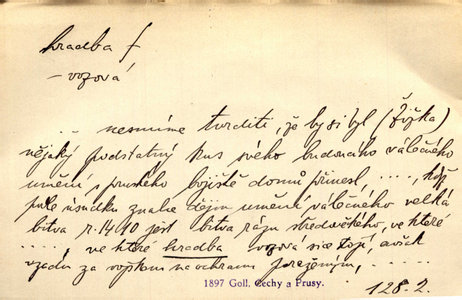 hradba f
– vozová
... nesmíme tvrditi, že by si byl (Žižka)
nějaký podstatný kus svého budoucího válečného
umění s pruského bojiště domů přinesl ...., když
podle úsudku znalce dějin umění válečného velká
bitva r. 1410 jest bitva rázu středověkého, ve které
....., ve které hradba vozová sice stojí, avšak
vzadu za vojskem na ochranu poraženým, .....
1897 Goll. Čechy a Prusy.
128.2.